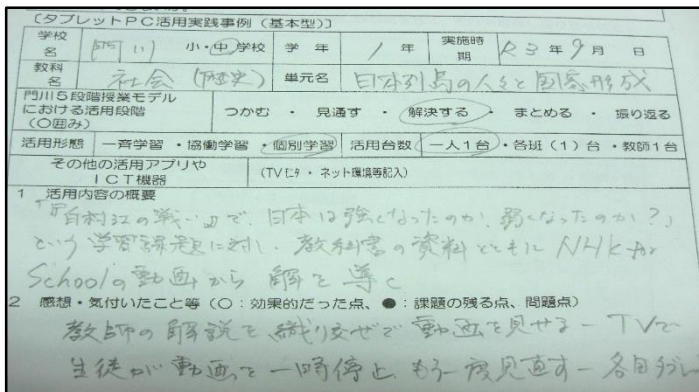 〔タブレットPC活用実践事例(基本型)〕
学校名 門川 小・中 学校 学年 1年 実施時期 R3年9月 日
教科名 社会(歴史) 単元名 日本列島の人々と国家形成
門川5段階授業モデルにおける活用段階(〇囲み) つかむ ・ 見通す ・ 解決する ・ まとめる ・ 振り返る
活用形態 一斉学習 ・協働学習 ・個別学習 活用台数 一人1台・各班(1)台・教師1台
その他の活用アプリやICT機器 (TVモニタ ・ ネット環境等記入)
1 活用内容の概要
「『白村江の戦い』で、日本は強くなったのか、弱くなったのか?」
という学習課題に対し、教科書の資料とともにNHK for
Schoolの動画から解を導く
2 感想・気付いたこと等(〇:効果的だった点、●:課題の残る点、問題点)
教師の解説を織り交ぜて動画を見せる-TVで
生徒が動画を一時停止、もう一度見直す-各自タブレ